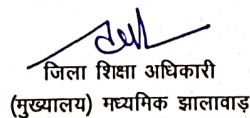 जिला शिक्षा अधिकारी
(मुख्यालय) माध्यमिक झालावाड़